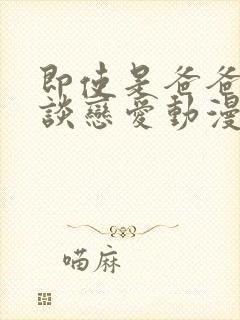 即使是爸爸
談戀愛動漫
喵麻